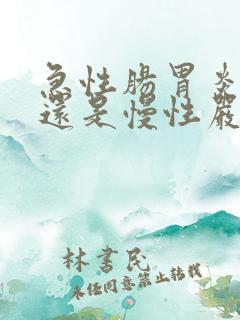 急性腸胃炎
還是慢性嚴
林書民
未經同意禁止轉載